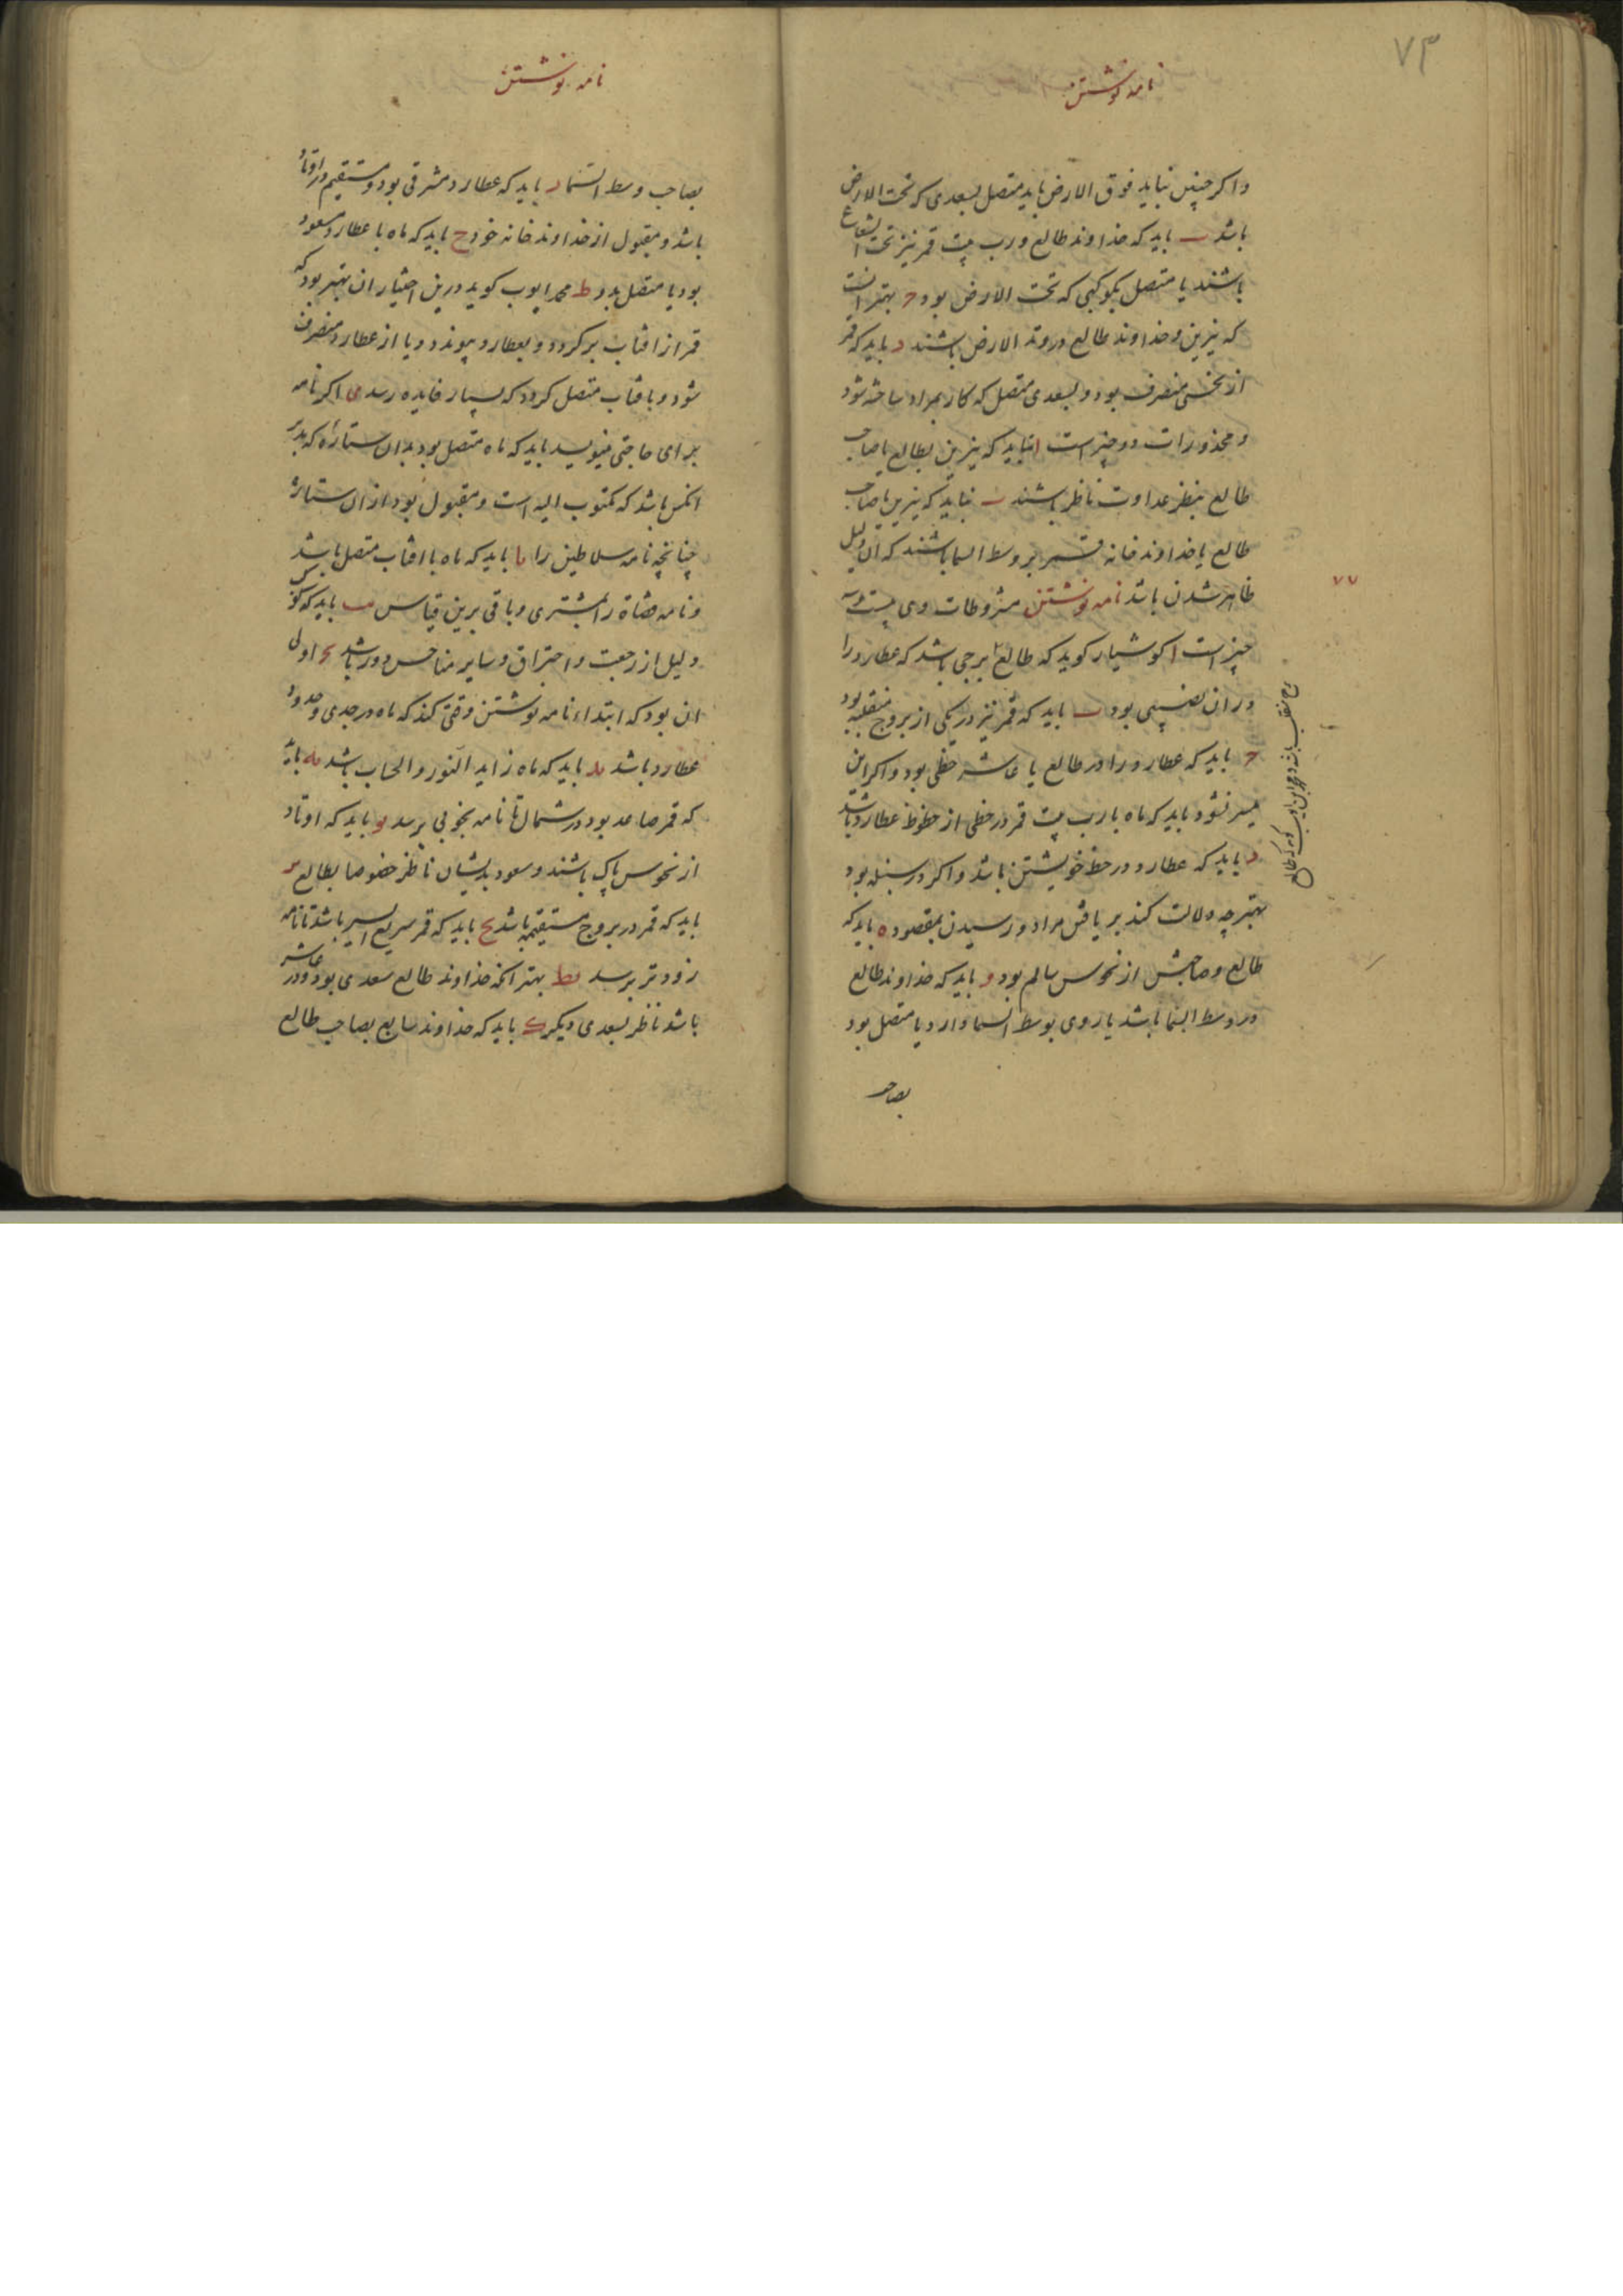 ۷۳
نامه نوشتن
واکر چنین نیاید فوق الارض باید متصل بسعدی که تحت الارض
باشد ب باید که خداوند طالع و رب بیت قمر نیز تحت الشعاع
باشند یا متصل بکوکبی که تحت الارض بود ج بهتر انست
که نیرین و خداوند طالع در وتد الارض باشند د باید که قمر
از نحسی منصرف بود و بسعدی متصل که کار بمراد ساخته شود
و محذورات دو چیز است ا نباید که نیرین بطالع یا صاحب
طالع بنظر عداوت ناظر باشند ب نباید که نیرین یا صاحب
طالع یا خداوند خانه قمر بر وسط السما باشند که ان دلیل
ظاهر شدن باشد نامه نوشتن مشروطات وی بیست و
چیز است ا کوشیار کوید که طالع برجی باشد که عطارد را
در ان نصیبی بود ب باید که قمر نیز در یکی از بروج منقلبه بود
ج باید که عطارد را در طالع یا عاشر حظی بود و اکر این
میسر نشود باید که ماه یا رب بیت قمر در حظی از حظوظ عطارد باشد
د باید که عطارد در حظ خویشتن باشد و اکر در سنبله بود
بهتر چه دلالت کند بر یافتن مراد و رسیدن بمقصود ه باید که
طالع و صاحبش از نحوس سالم بود و باید که خداوند طالع
در وسط السما باشد یا روی بوسط السما دارد یا متصل بود
بصاحب
۷۷
نامه نوشتن
بصاحب وسط السما ز باید که عطارد مشرقی بود و مستقیم در اوتاد
باشد و مقبول از خداوند خانه خود ح باید که ماه با عطارد مسعود
بود یا متصل بدو ط محمد ایوب کوید درین اختیار ان بهتر بود که
قمر از افتاب برکردد و بعطارد پیوندد و یا از عطارد منصرف
شود و بافتاب متصل کردد که بسیار فایده رسد ی اکر نامه
برای حاجتی مینویسد باید که ماه متصل بود بدان ستاره که مدبر
انکس باشد که مکتوب الیه است و مقبول بود از ان ستاره
چنانچه نامه سلاطین را یا باید که ماه با افتاب متصل باشد
و نامه قضاة را بمشتری و باقی برین قیاس یب باید که کوکب
دلیل از رجعت و احتراق و سایر مناحس دور باشد یج اولی
ان بود که ابتداء نامه نوشتن وقتی کند که ماه در جدی و حدود
عطارد باشد ید باید که ماه زاید النور و الحساب باشد یه باید
که قمر صاعد بود در شمال تا نامه بخوبی برسد یو باید که اوتاد
از نحوس پاک باشند و سعود بدیشان ناظر خصوصا بطالع یز
باید که قمر در بروج مستقیمه باشد یح باید که قمر سریع السیر باشد تا نامه
زودتر برسد یط بهتر انکه خداوند طالع سعدی بود و در عاشر
باشد ناظر بسعدی دیکر ک باید که خداوند سابع بصاحب طالع